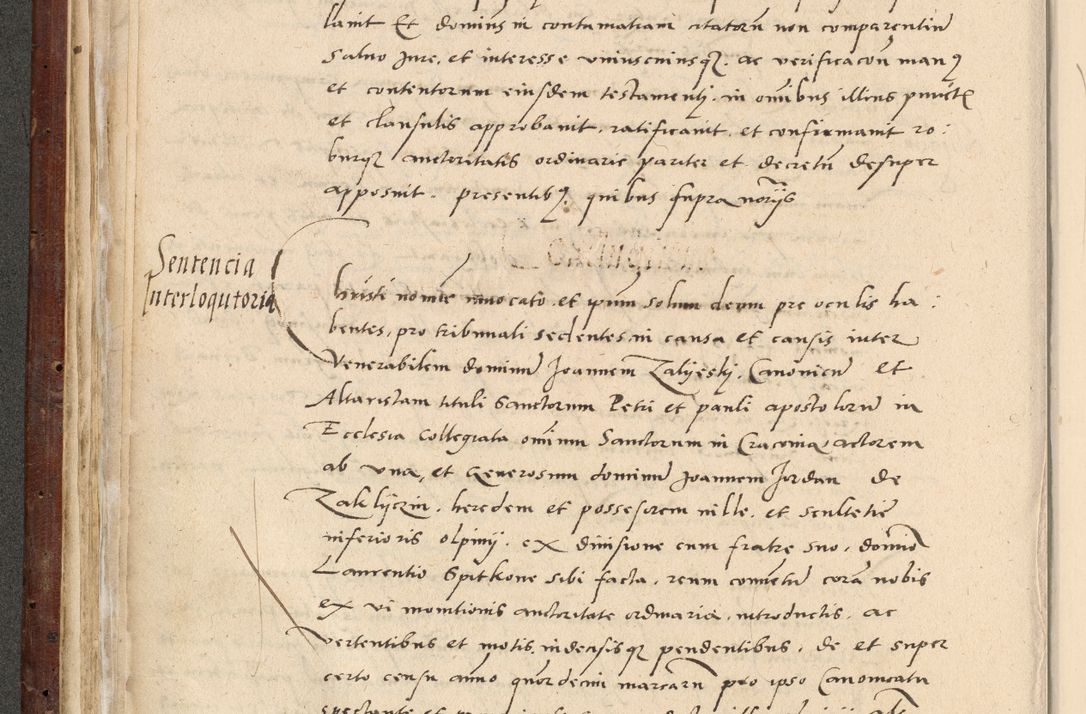 lauit Et dominus in contumatiam citatorum non comparentium
Saluo Jure, et interesse vniuscuiusq3. ac verificacon manꝰ
et contentorum eiusdem testamentj. in omībus illius punctis
et clausulis approbauit. ratificauit. et confirmauit ro:
burq3 auctoritatis ordinarie pariter et decretū desuper
apposuit. presentibꝰ. quibus supra notrijs
Sentencia
Interloqutoria
Christi nomine inuocato. et ipsum solum deum pre oculis ha:
bentes, pro tribunali sedentes, in causa et causis inter
Venerabilem dominum Joannem Zalijeskj. Canonicū et
Altaristam tituli Sanctorum Petri et pauli apostolorū in
Ecclesia Collegiata omnium Sanctorum in Cracouia actorem
ab vna, et Generosum dominum Joannem Jordan de
Zaklijczin. heredem et possessorem ville. et scultetie
inferioris olpinij. ex diuisione cum fratre suo. domino
Laurentio Spitkone sibi facta. reum conuentū corā nobis
ex vi monitionis auctoritate ordinaria. introductis. ac
vertentibus et motis, indecisisq3 pendentibus. de et super
certo censu anno quordecim marcarū pro ipso Canonicatu
spectante et